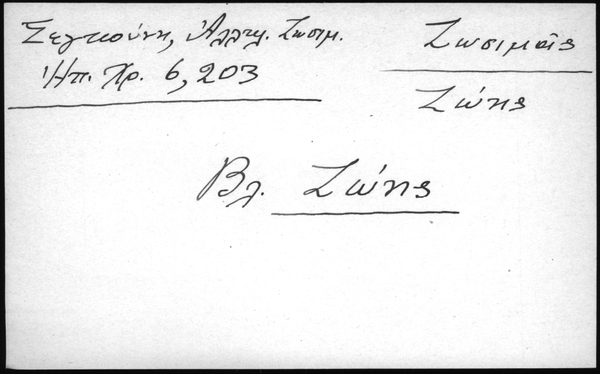 Σεγκούνη, Ἀλληλ. Ζωσιμ.
Ἠπ. Χρ. 6, 203
Ζωσιμᾶς
Ζώης
Βλ. Ζώης